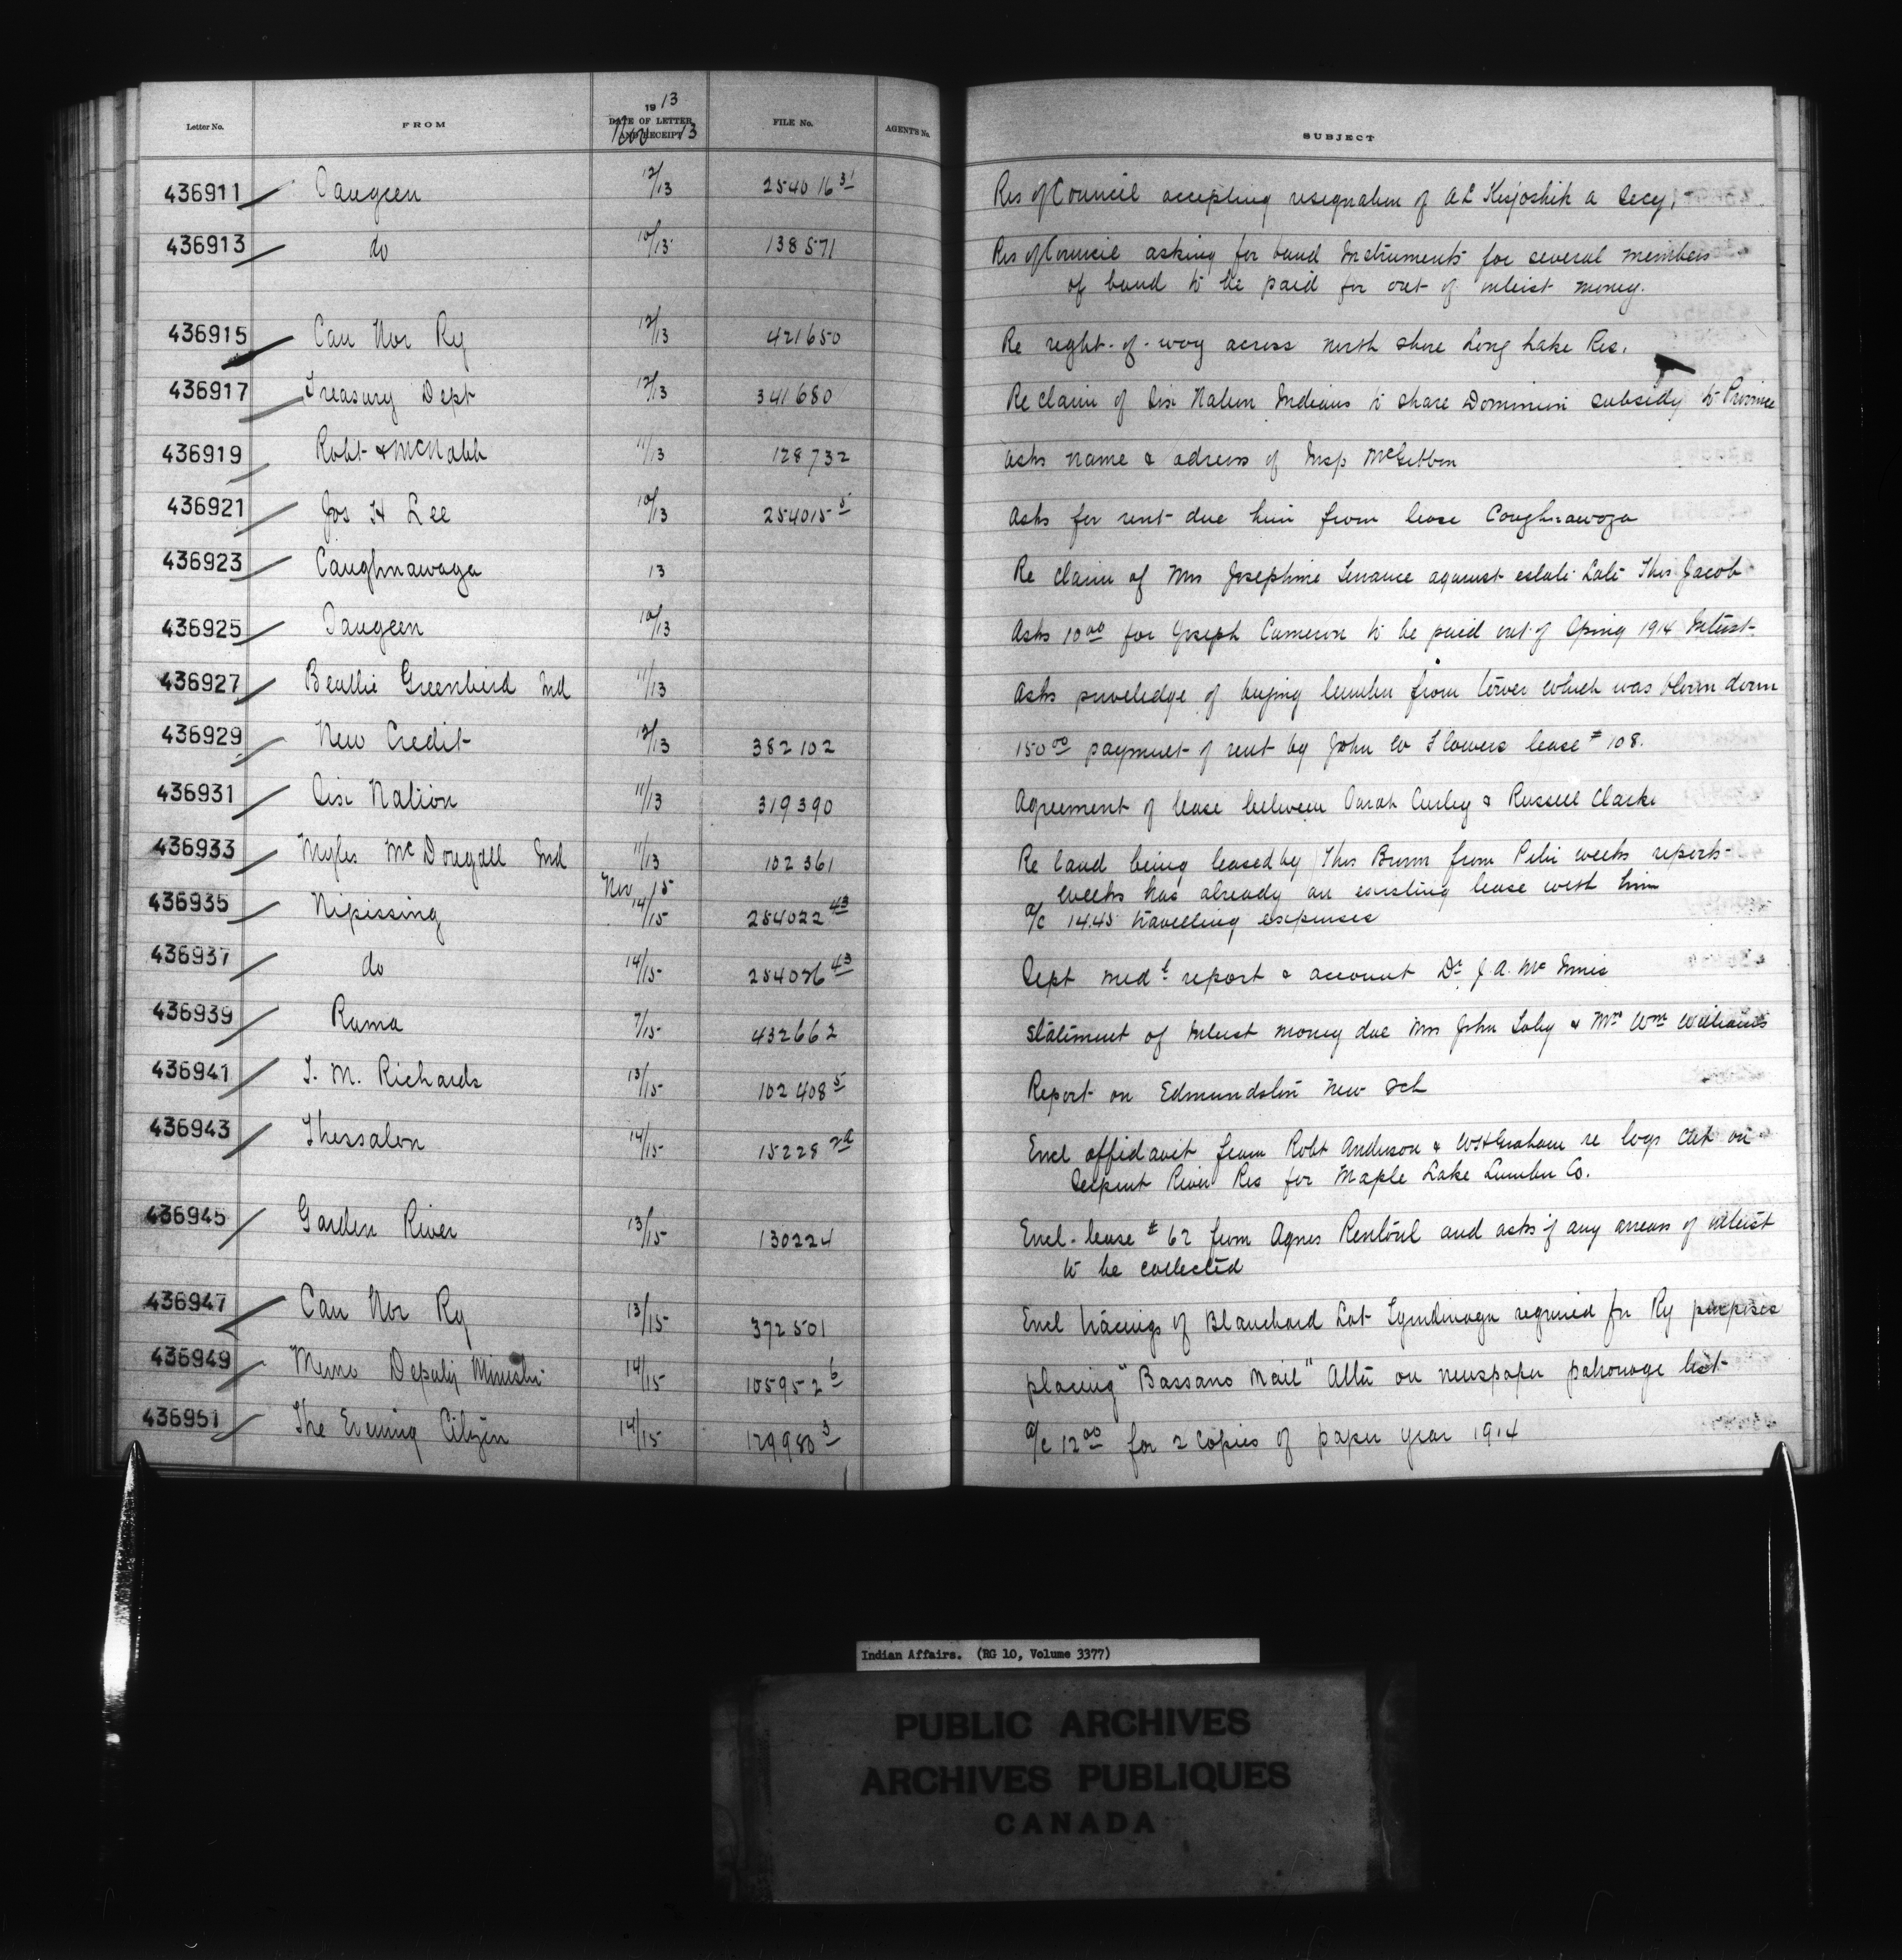 Letter No. FROM 1913 DATE OF LETTER AND RECEIPT Nov 13 FILE No. AGENT'S No. SUBJECT
436911 Saugeen 12/13 254016 31 Res of Council accepting resignation of A L Kisjoshik a Secy.
436913 do 10/13 138571 Res of Council asking for band Instruments for several members
of band to be paid for out of interest money.
436915 Can Nor Ry 12/13 421650 Re right-of-way across north shore Long Lake Res.
436917 Treasury Dept 12/13 341680 Re claim of Six Nation Indians to share Dominion subsidy to Province
436919 Robt & McNabb 11/13 128732 asks name & adress of Insp McGibbon
436921 Jos H Lee 10/13 254015 5 Asks for rent due him from lease Caughnawaga
436923 Caughnawaga 13 Re claim of Mrs Josephine against estate Late Thos Jacob
436925 Saugeen 10/13 Asks 10 00 for Joseph Cameron to be paid out of Spring 1914 Interest
436927 Greenbird Ind 11/13 Asks priveledge of buying lumber from tower which was blown down
436929 New Credit 12/13 382102 150 00 payment of rent by John W Flowers lease # 108.
436931 Six Nation 11/13 319390 Agreement of lease between Sarah Curley & Russell Clarke
436933 Myles McDougall Ind 11/13 102361 Re land being leased by Thos Brown from Peter weeks reports
Nov 15 weeks has already an existing lease with him
436935 Nipissing 14/15 254022 43 a/c 14.45 travelling expenses
436937 do 14/15 254026 43 Sept med l report & account Dr J. A. Mc Innis
436939 Rama 7/15 432662 Statement of Interest money due Mrs John Toby & Mrs Wm Williams
436941 T. M. Richards 13/15 102408 5 Report on Edmundston New Sch
436943 Thessalon 14/15 15228 Encl affidavit from Robt Anderson & W H Graham re logs cut on
Serpent River Res for Maple Lake Lumber Co.
436945 Garden River 13/15 130224 Encl. lease # 62 from Agnes Rentoul and asks if any arrears of interest
to be collected
436947 Can Nor Ry 13/15 372501 Encl tracings of Blanchard Lot Tyendinaga required for Ry purposes
436949 Memo Deputy Minister 14/15 105952 6 placing "Bassano Mail" Alta on newspaper patronage list
436951 The Evening Citizen 14/15 129980 3 a/c 12 00 for 2 copies of paper year 1914
Indian Affairs. (RG 10, Volume 3377)
PUBLIC ARCHIVES
ARCHIVES PUBLIQUES
CANADA